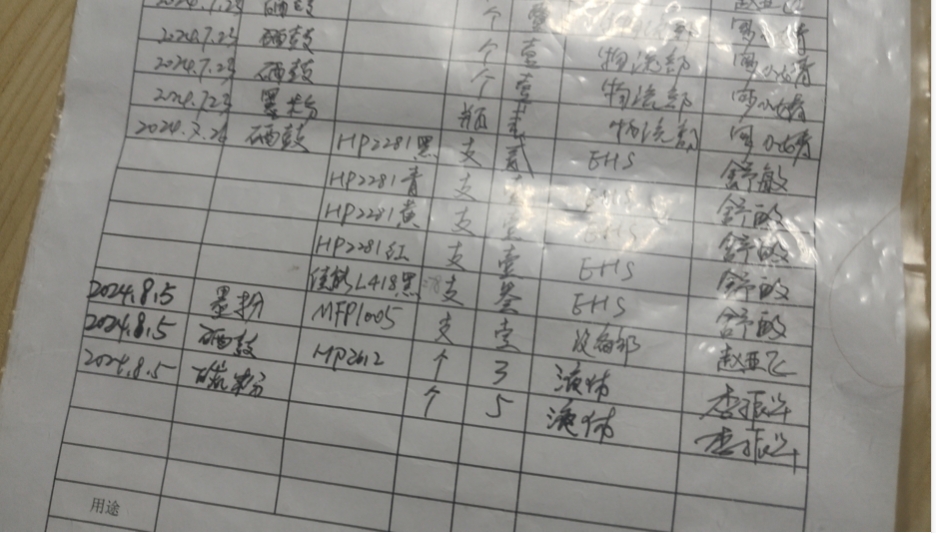 2024.7.23 硒鼓 个 壹
2024.7.23 硒鼓 个 壹 物流部
2024.7.23 硒鼓 个 壹 物流部
2024.7.23 墨粉 瓶 物流部
2024.7.26 硒鼓 HP2281黑 支 贰 EHS 舒敏
HP2281青 支 壹 EHS 舒敏
HP2281黄 支 壹 EHS 舒敏
HP2281红 支 壹 EHS 舒敏
佳能L418黑 支 叁 EHS 舒敏
2024.8.5 墨粉 MFP1005 支 壹 设备部 赵亚飞
2024.8.5 硒鼓 HP2612 个 3 液体 李振兴
2024.8.5 碳粉 个 5 液体 李振兴
用途